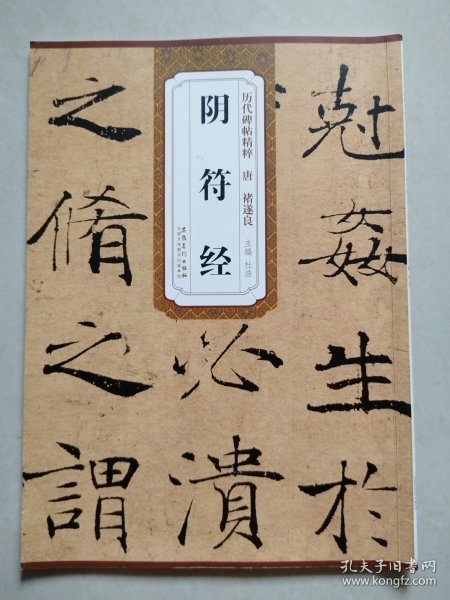 历代碑帖精粹 唐 褚遂良
主编 杜浩
阴符经
安徽美术出版社
尅姦生於
必潰
之脩之謂
孔夫子旧书网
www.kongfz.com